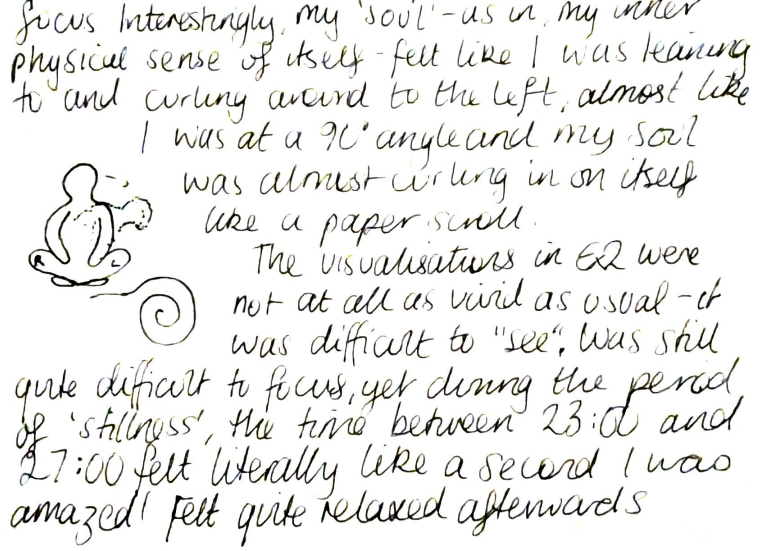 focus Interestingly, my 'soul' - as in, my inner
physical sense of itself - felt like I was leaning
to and curling around to the left, almost like
I was at a 90° angle and my soul
was almost curling in on itself
like a paper scroll.
R L
The visualisations in E2 were
not at all as vivid as usual - it
was difficult to "see". Was still
quite difficult to focus, yet during the period
of 'stillness', the time between 23:00 and
27:00 felt literally like a second I was
amazed! Felt quite relaxed afterwards